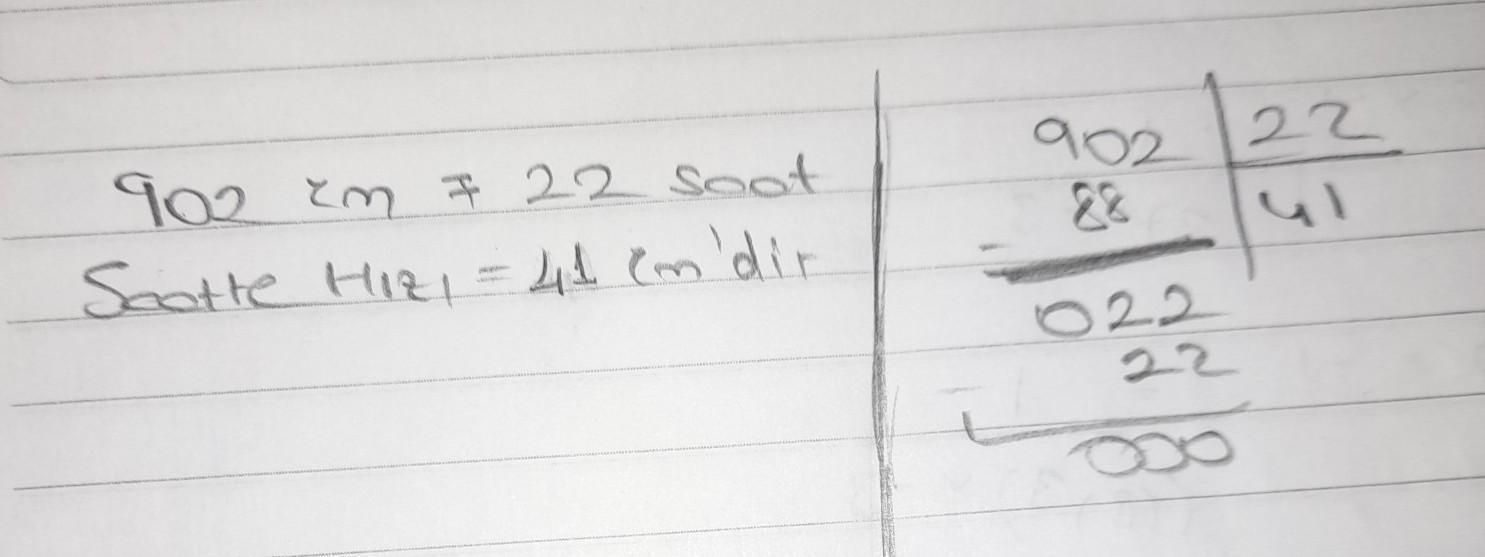 902 cm ÷ 22 saat
Saatte Hızı = 41 cm'dir
902 | 22
88 | 41
-
022
22
-
000